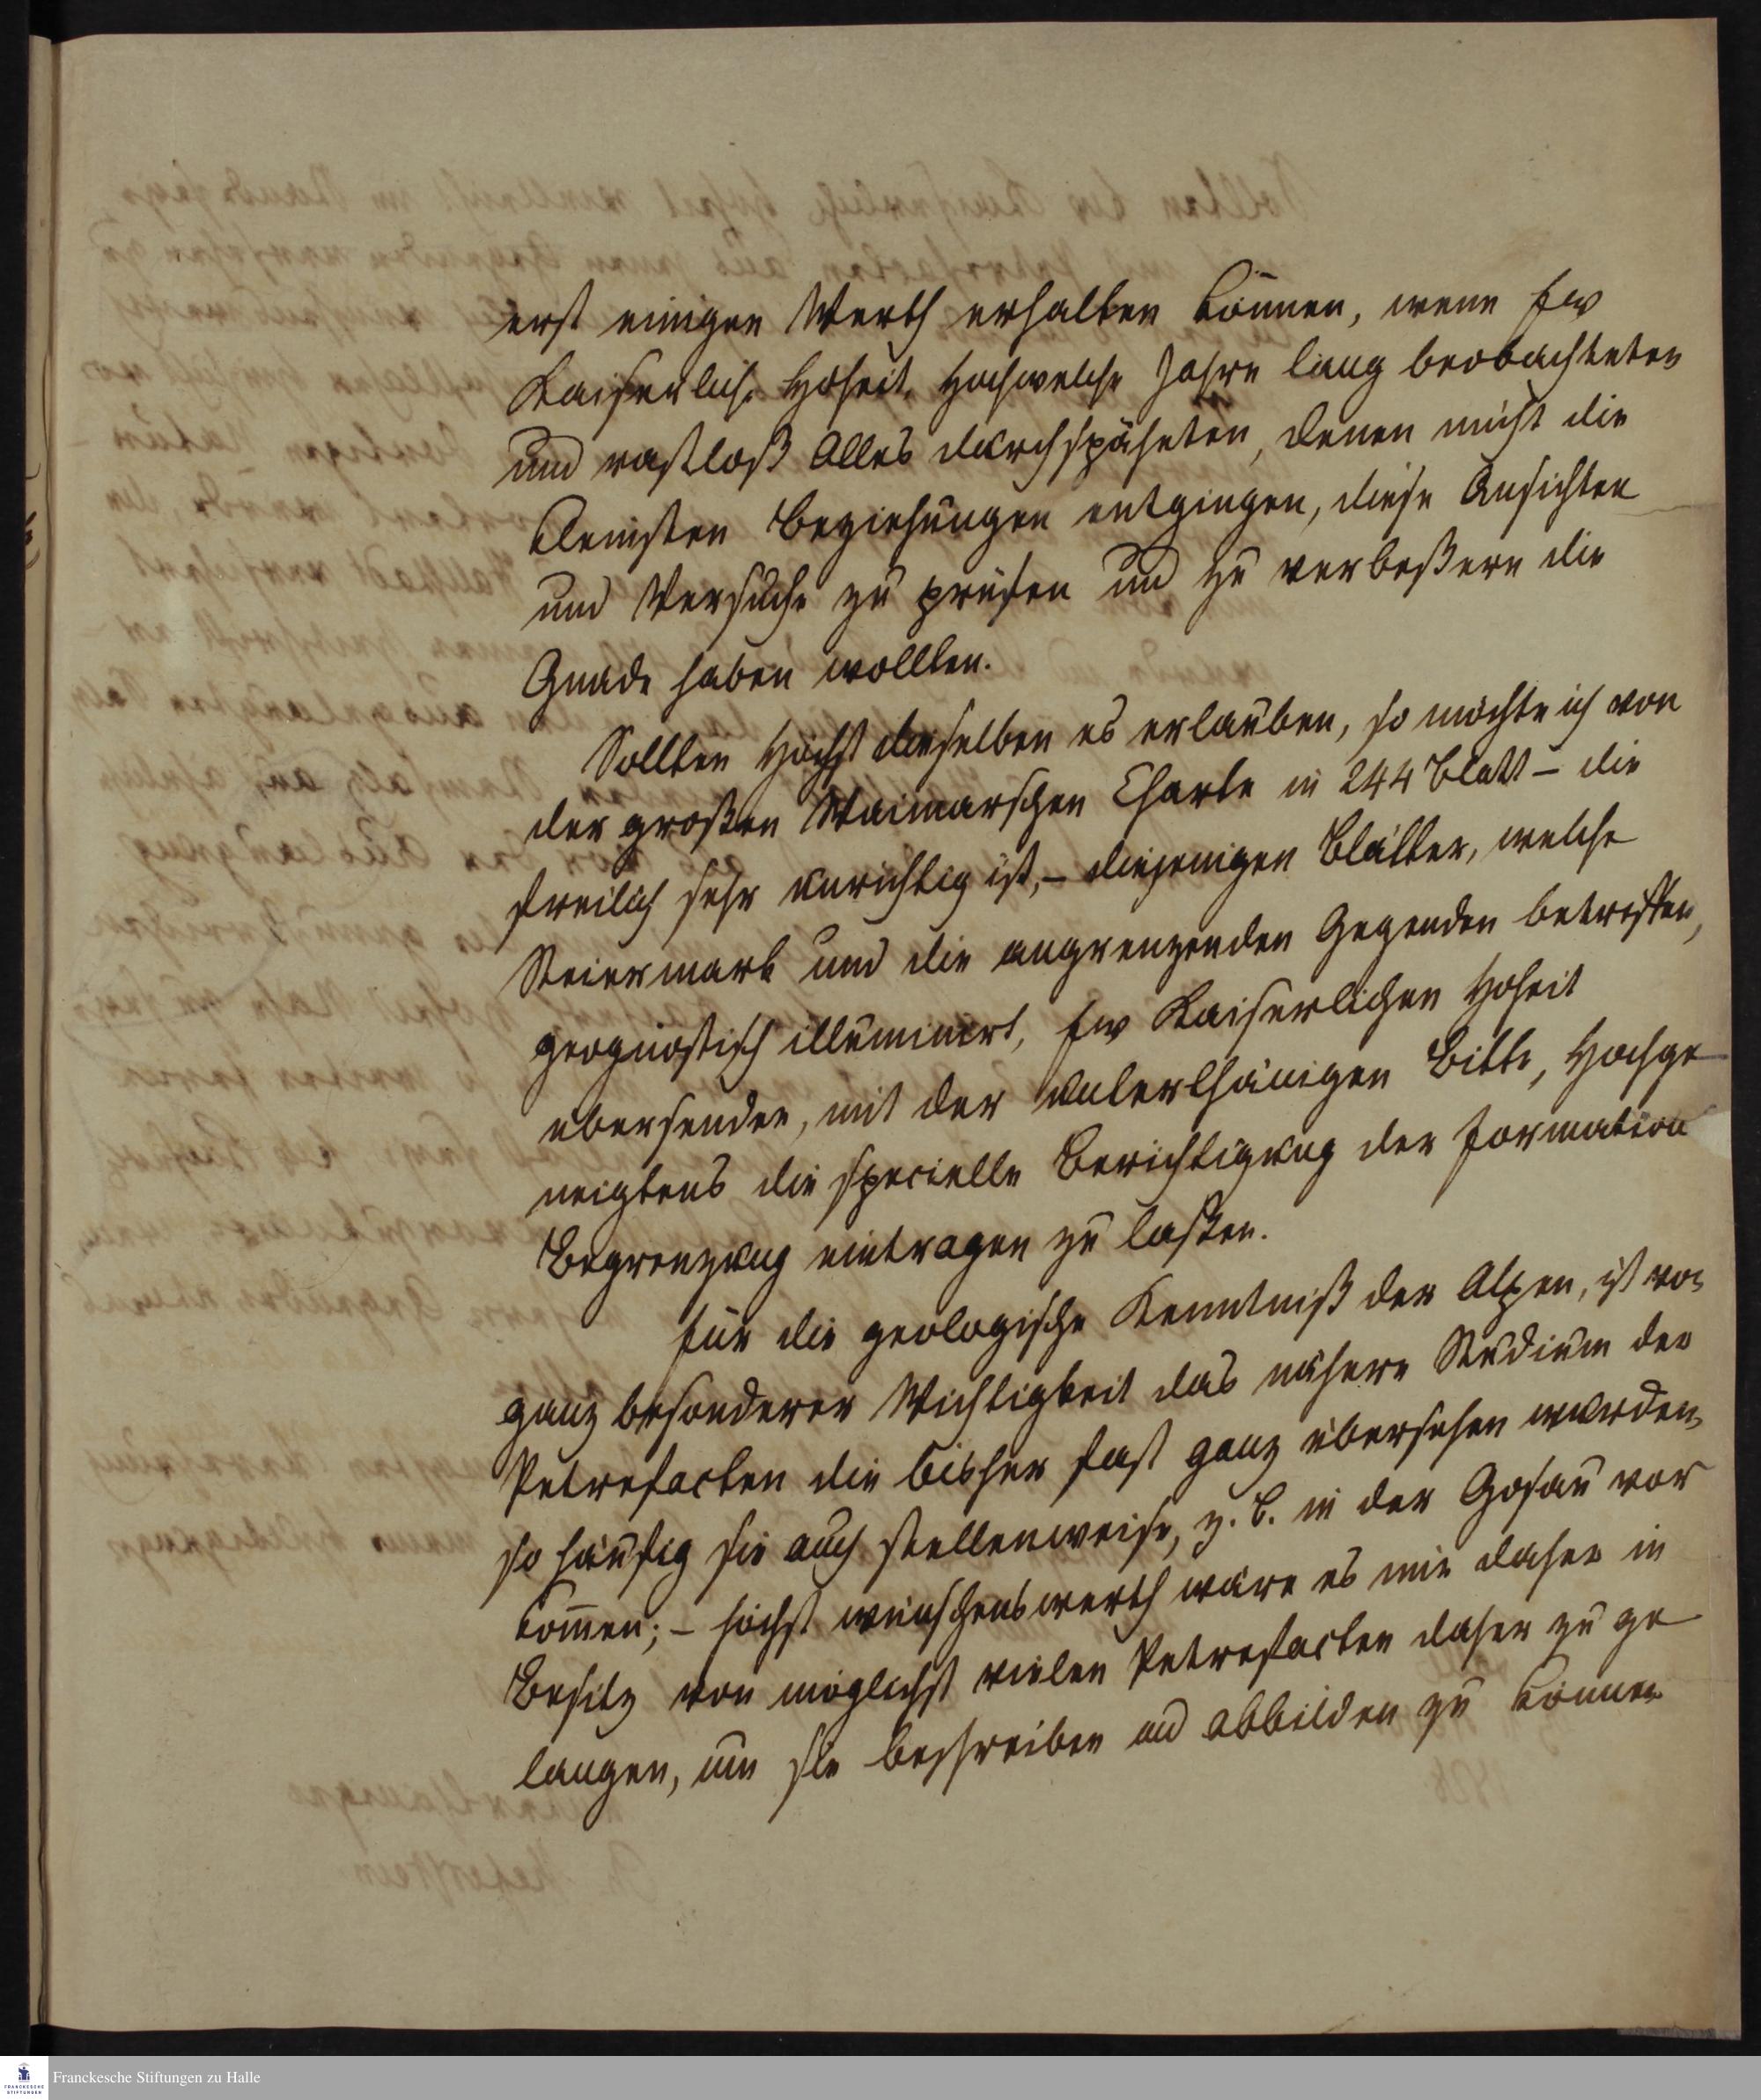 erst einigen Werth erhalten können, wenn Ew
Kaiserlich. Hoheit, Hochwelche Jahre lang beobachteten
und rastloß Alles durchspäheten, denen nicht die
kleinsten Beziehungen entgingen, diese Ansichten
und Versuche zu prüfen und zu verbeßern die
Gnade haben wollten.
Sollten Höchst dieselben es erlauben, so möchte ich von
der großen Waimarschen Charte in 244 Blatt – die
freilich sehr unrichtig ist, – diejenigen Blätter, welche
Steiermark und die angrenzenden Gegenden betreffen,
geognostisch illuminirt, Ew Kaiserlichen Hoheit
übersenden, mit der unterthänigen Bitte, Hochge
neigtens die specielle Berichtigung der Formation
Begrenzung eintragen zu laßen.
Für die geologische Kenntniß der Alpen, ist von
ganz besonderer Wichtigkeit das nähere Studium der
Petrefacten die bisher fast ganz übersehen wurden,
so häufig sie auch stellenweise, z. B. in der Gosau vor
kom̄en; – höchst wünschenswerth wäre es mir daher in
Besitz von möglichst vielen Petrefacten daher zu ge
langen, um sie beschreiben und abbilden zu können
Franckesche Stiftungen zu Halle